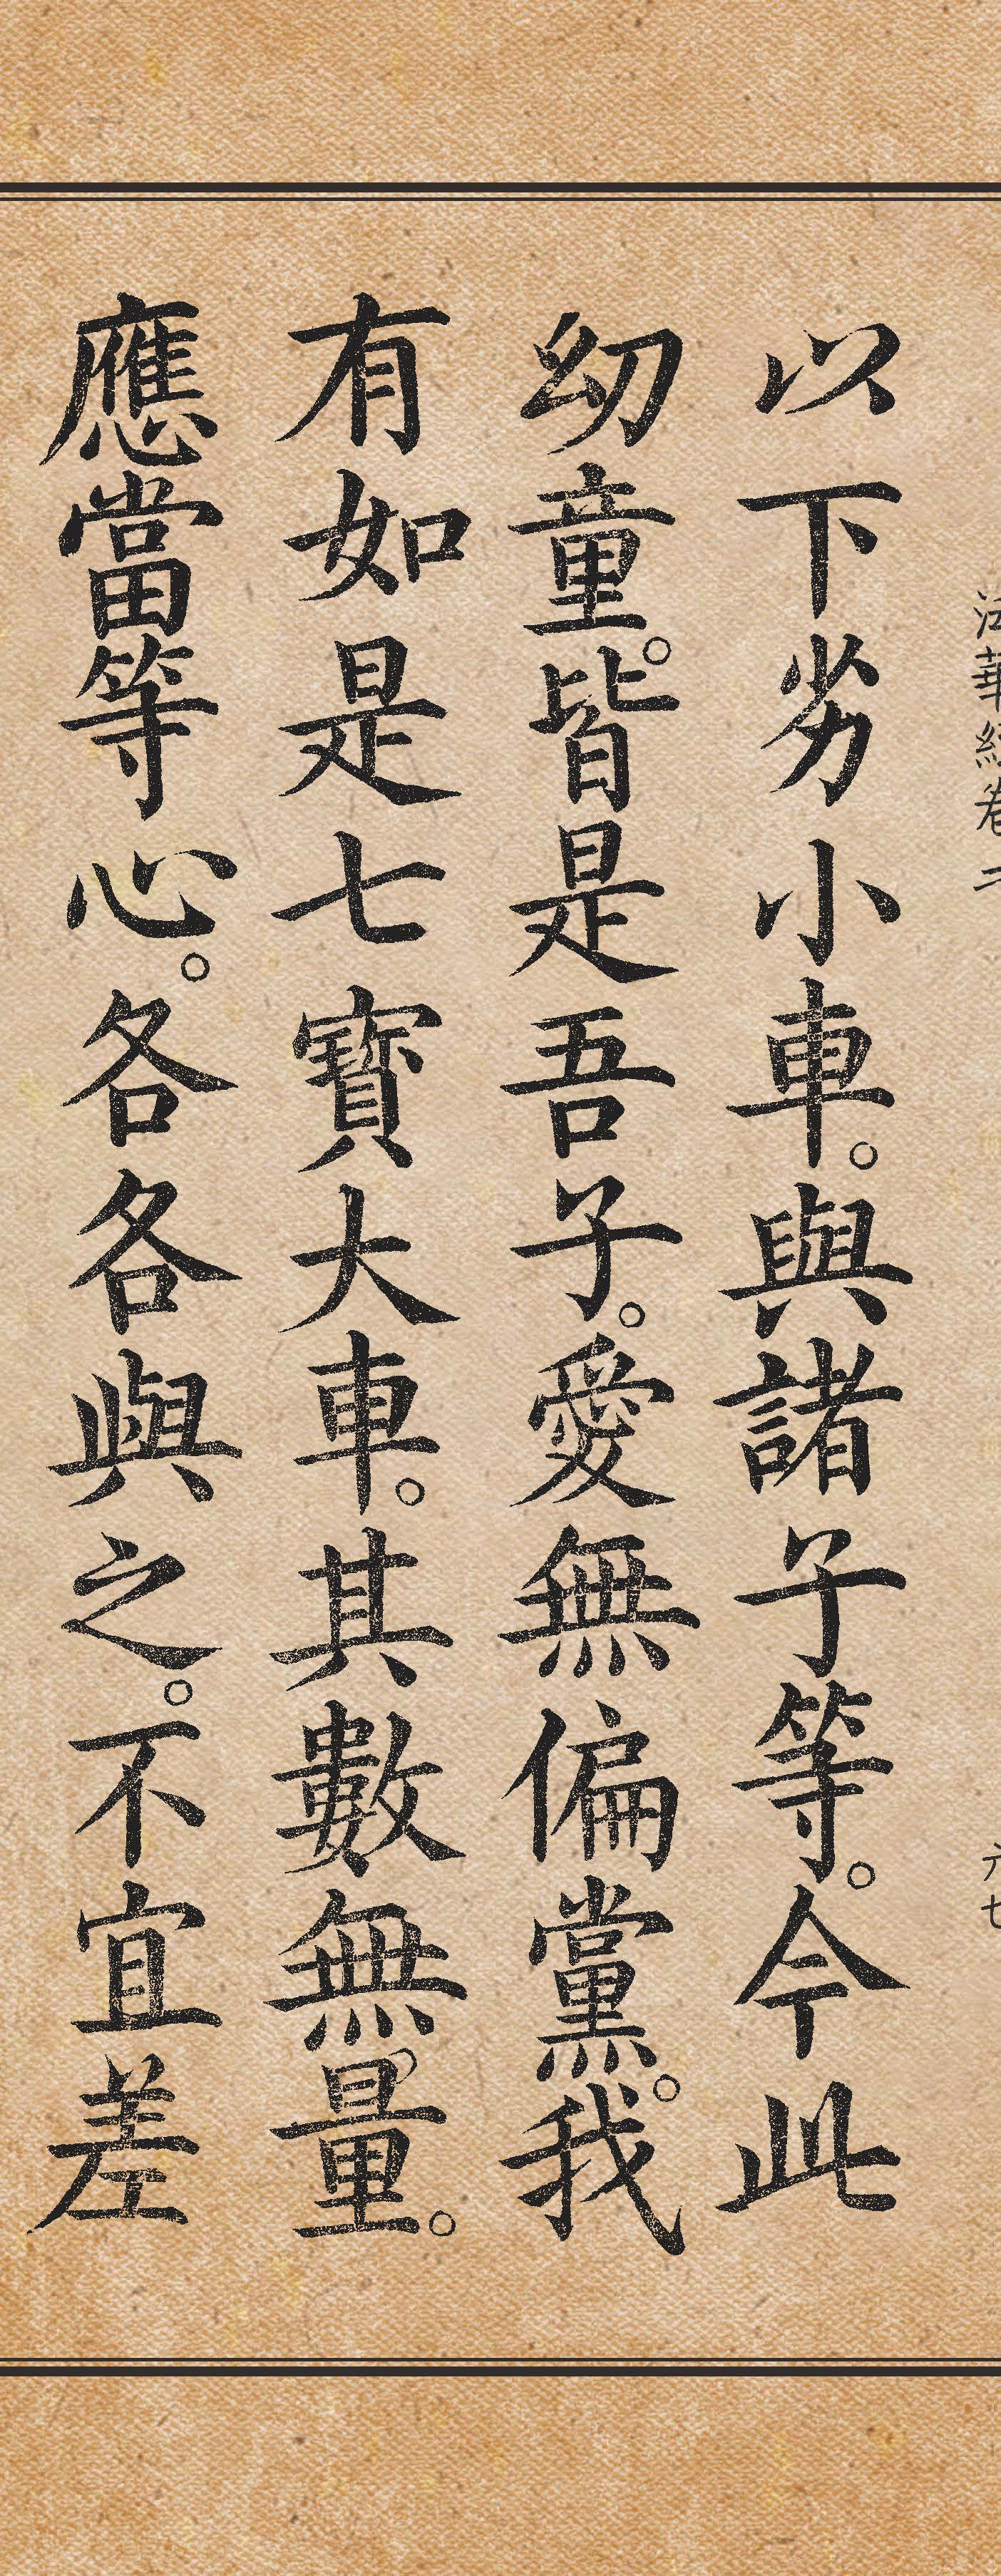 法華經卷二
六七
以下劣小車。與諸子等。今此
幼童。皆是吾子。愛無偏黨。我
有如是七寶大車。其數無量。
應當等心。各各與之。不宜差